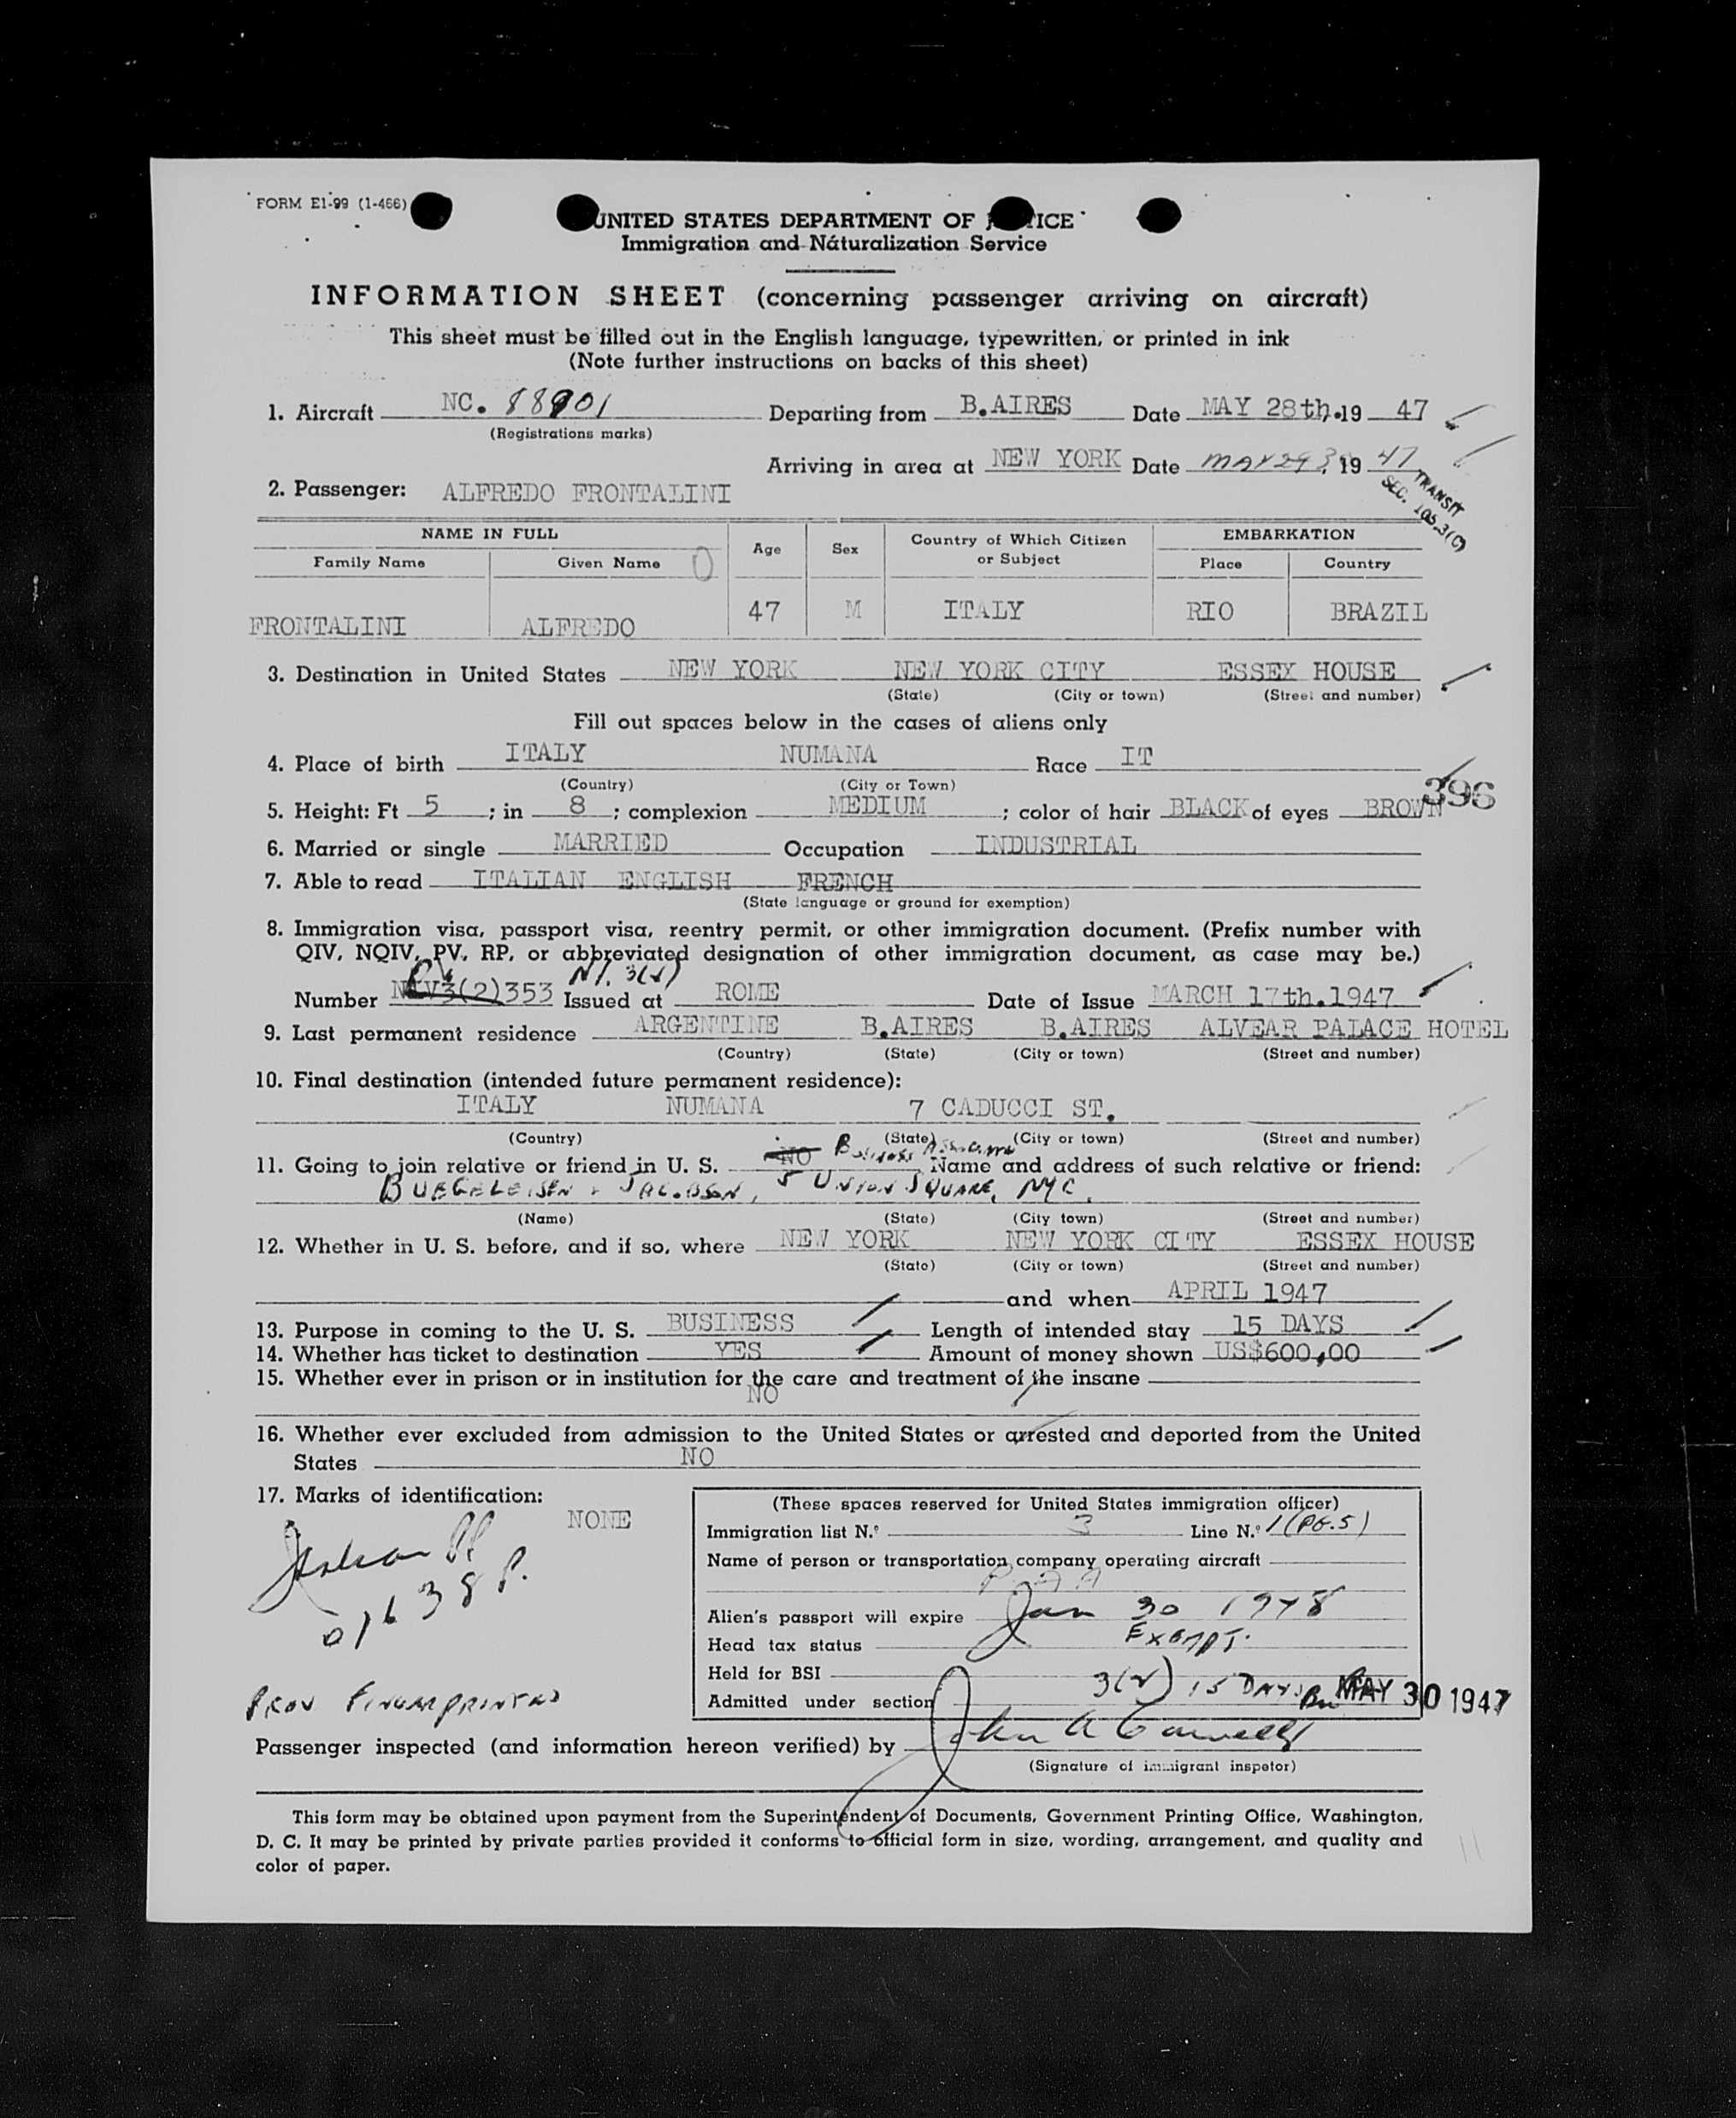 FORM E1-99 (1-466)
UNITED STATES DEPARTMENT OF J   TICE
Immigration and Naturalization Service
INFORMATION SHEET (concerning passenger arriving on aircraft)
This sheet must be filled out in the English language, typewritten, or printed in ink
(Note further instructions on backs of this sheet)
1. Aircraft NC. 88901 Departing from B.AIRES Date MAY 28th.19 47
(Registrations marks)
Arriving in area at NEW YORK Date MAY 19 47
TRANSIT
SEC. 105.3(C)
2. Passenger: ALFREDO FRONTALINI
NAME IN FULL Age Sex Country of Which Citizen or Subject EMBARKATION
Family Name Given Name Place Country
FRONTALINI ALFREDO 47 M ITALY RIO BRAZIL
3. Destination in United States NEW YORK NEW YORK CITY ESSEX HOUSE
(State) (City or town) (Street and number)
Fill out spaces below in the cases of aliens only
4. Place of birth ITALY NUMANA Race IT
(Country) (City or Town)
396
5. Height: Ft 5 ; in 8 ; complexion MEDIUM ; color of hair BLACK of eyes BROWN
6. Married or single MARRIED Occupation INDUSTRIAL
7. Able to read ITALIAN ENGLISH FRENCH
(State language or ground for exemption)
8. Immigration visa, passport visa, reentry permit, or other immigration document. (Prefix number with
QIV, NQIV, PV, RP, or abbreviated designation of other immigration document, as case may be.)
PV 3(2)
Number 3(2)353 Issued at ROME Date of Issue MARCH 17th.1947
9. Last permanent residence ARGENTINE B.AIRES B.AIRES ALVEAR PALACE HOTEL
(Country) (State) (City or town) (Street and number)
10. Final destination (intended future permanent residence):
ITALY NUMANA 7 CADUCCI ST.
(Country) (State) (City or town) (Street and number)
11. Going to join relative or friend in U. S. NO Business Name and address of such relative or friend:
BUEGELEISEN & JACOBSON, 5 UNION SQUARE, NYC.
(Name) (State) (City town) (Street and number)
12. Whether in U. S. before, and if so, where NEW YORK NEW YORK CITY ESSEX HOUSE
(State) (City or town) (Street and number)
and when APRIL 1947
13. Purpose in coming to the U. S. BUSINESS Length of intended stay 15 DAYS
14. Whether has ticket to destination YES Amount of money shown US$600,00
15. Whether ever in prison or in institution for the care and treatment of the insane
NO
16. Whether ever excluded from admission to the United States or arrested and deported from the United
States NO
17. Marks of identification:
NONE
01638 P.
PREV FINGERPRINTED
(These spaces reserved for United States immigration officer)
Immigration list N.º 3 Line N.º 1 (PG.5)
Name of person or transportation company operating aircraft
P.A.A
Alien's passport will expire Jan 30 1948
Head tax status EXEMPT.
Held for BSI
Admitted under section 3(2) 15 DAYS MAY 30 1947
Passenger inspected (and information hereon verified) by John A
(Signature of immigrant inspetor)
This form may be obtained upon payment from the Superintendent of Documents, Government Printing Office, Washington,
D. C. It may be printed by private parties provided it conforms to official form in size, wording, arrangement, and quality and
color of paper.